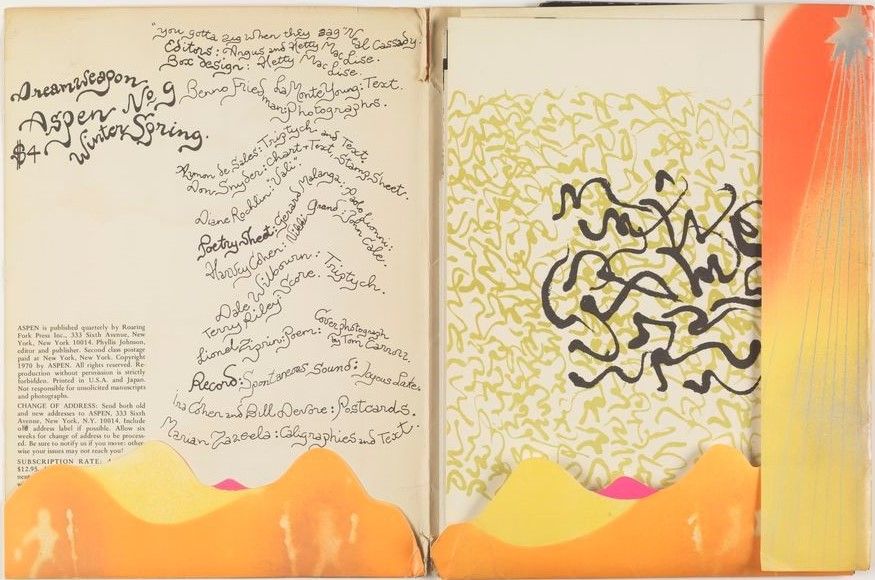 "you gotta zig when they zag" N
eal Cassady.
Editors: Angus and Hetty Mac Lise.
Box design: Hetty Mac
Lise.
Dreamweapon
Aspen No. 9
Winter Spring.
$4
Benno Fried LaMonteYoung: Text.
man: Photographs.
Aymon de Sales: Triptych. and Text.
Don Snyder: Chart + Text, Stamp Sheet.
Diane Rochlin: "Vali"
Poetry sheet: Gerard Malanga:
Harvey Cohen: Vikki Grand: John Cale.
Dale Wilbourn: Triptych.
Terry Riley: Score.
Lionel Ziprin: Poem: Cover photograph
by Tom Carroll.
Record: Spontaneous Sound: Joyous Lake.
Ira Cohen and Bill Devore: Postcards.
Marian Zazeela: Caligraphies and Text.
ASPEN is published quarterly by Roaring
Fork Press Inc., 333 Sixth Avenue, New
York, New York 10014. Phyllis Johnson,
editor and publisher. Second class postage
paid at New York, New York. Copyright
1970 by ASPEN. All rights reserved. Re-
production without permission is strictly
forbidden. Printed in U.S.A. and Japan.
Not responsible for unsolicited manuscripts
and photographs.
CHANGE OF ADDRESS: Send both old
and new addresses to ASPEN, 333 Sixth
Avenue, New York, N.Y. 10014. Include
old address label if possible. Allow six
weeks for change of address to be process-
ed. Be sure to notify us if you move: other-
wise your issues may not reach you!
SUBSCRIPTION RATE:
$12.95